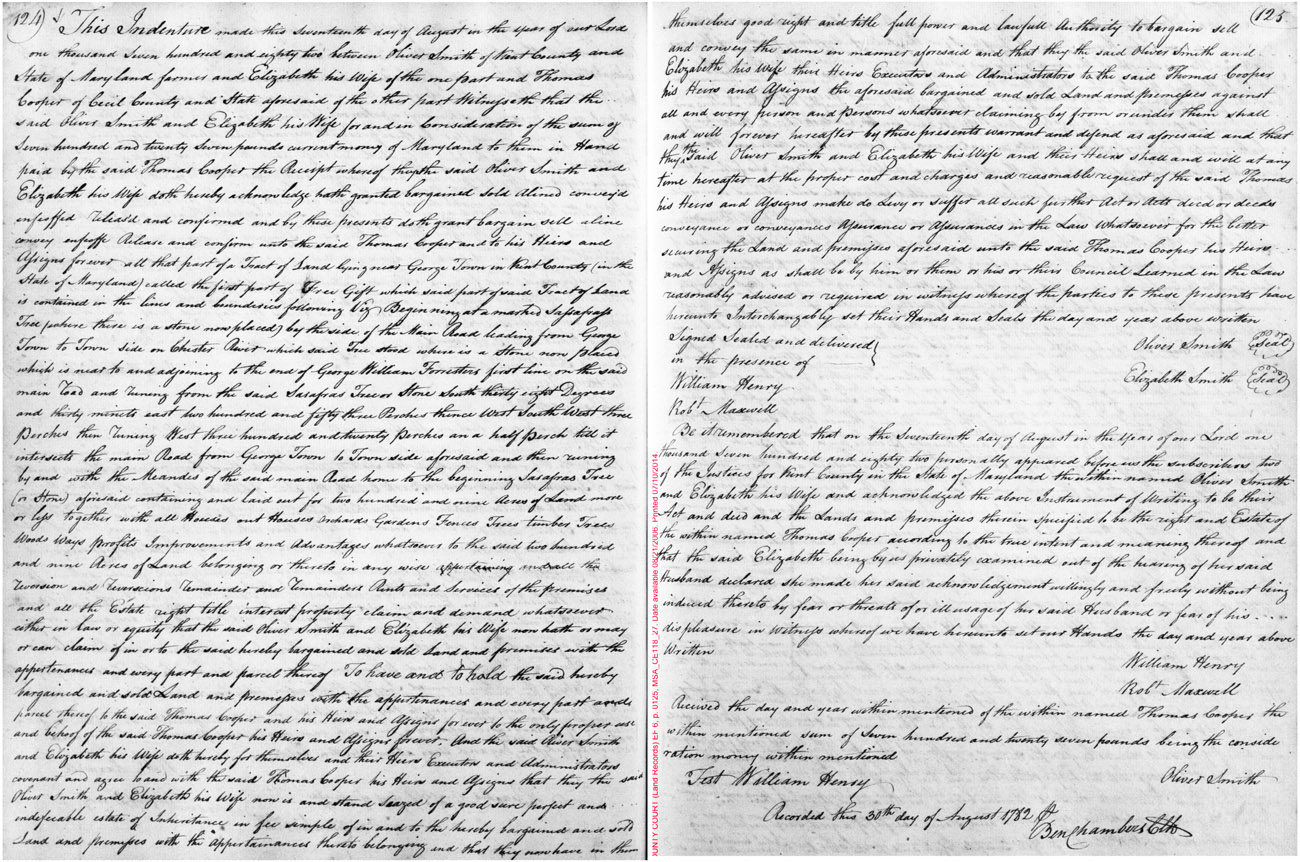 124
This Indenture made this Seventeenth day of August in the year of our Lord
one thousand Seven hundred and eighty two between Oliver Smith of Kent County and
State of Maryland farmer and Elizabeth his Wife of the one part and Thomas
Cooper of Cecil County and State aforesaid of the other part Witnesseth that the
said Oliver Smith and Elizabeth his Wife for and in Consideration of the sum of
Seven hundred and twenty Seven pounds current money of Maryland to them in Hand
paid by the said Thomas Cooper the Receipt whereof they the said Oliver Smith and
Elizabeth his Wife doth hereby acknowledge hath granted bargained Sold Aliened convey'd
enfeoffed Releas'd and confirmed and by these presents doth grant bargain sell aline
convey enfeoffe Release and confirm unto the said Thomas Cooper and to his Heirs and
Assigns forever all that part of a Tract of Land Lying near George Town in Kent County (in the
State of Maryland) called the first part of Free Gift which said part of said Tract of Land
is contained in the lines and bounderies following Viz Beginning at a marked Sassafrass
Tree (where there is a stone now placed) by the side of the Main Road leading from George
Town to Town side on Chester River which said Tree stood where is a Stone now placed
which is near to and adjoining to the end of George William Forresters first line on the said
main Road and runing from the said Sasafras Tree or Stone South thirty eight Degrees
and thirty minets east two hundred and fifty three Perches thence West South West three
Perches then runing West three hundred and twenty perches an a half perch till it
intersects the main Road from George Town to Town side aforesaid and then runing
by and with the Meandes of the said main Road home to the beginning Sasafras Tree
(or Stone) aforesaid containing and laid out for two hundred and nine Acres of Land more
or less together with all Houses out Houses orchards Gardens Fences Trees timber Trees
Woods Ways profits Improvements and Advantages whatsoever to the said two hundred
and nine Acres of Land belonging or thereto in any wise appertaining and all the
reversion and reversions remainder and remainders Rents and Services of the premises
and all the Estate right title interest property claim and demand whatsoever
either in law or equity that the said Oliver Smith and Elizabeth his Wife now hath or may
or can claim of in or to the said hereby bargained and sold Land and premises with the
appertenances and every part and parcel thereof To have and to hold the said hereby
bargained and sold Land and premisses with the appertenances and every part and
parcel thereof to the said Thomas Cooper and his Heirs and Assigns for ever to the only proper use
and behoof of the said Thomas Cooper his Heirs and Assigns forever, And the said Oliver Smith
and Elizabeth his Wife doth hereby for themselves and their Heirs Executors and Administrators
covenant and agree to and with the said Thomas Cooper his Heirs and Assigns that they the said
Oliver Smith and Elizabeth his Wife now is and stand Seazed of a good sure perfect and
indefecable estate of Inheritance in fee simple of in and to the hereby bargained and sold
Land and premisses with the Appertainances thereto belonging and that they now have in them
125
themselves good right and title full power and lawfull Authority to bargain sell
and convey the same in manner aforesaid and that they the said Oliver Smith and
Elizabeth his Wife their Heirs Executors and Administrators to the said Thomas Cooper
his Heirs and Assigns the aforesaid bargained and sold Land and premisses against
all and every person and persons whatsoever claiming by from or under them shall
and will forever hereafter by these presents warrant and defend as aforesaid and that
they the said Oliver Smith and Elizabeth his Wife and their Heirs shall and will at any
time hereafter at the proper cost and charges and reasonable request of the said Thomas
his Heirs and Assigns make do Levy or suffer all such further Act or Acts deed or deeds
conveyance or conveyances Assurance or Assurances in the Law Whatsoever for the better
securing the Land and premisses aforesaid unto the said Thomas Cooper his Heirs
and Assigns as shall be by him or them or his or their Council Learned in the Law
reasonably advised or required in witness whereof the parties to these presents have
hereunto Interchangably set their Hands and Seals the day and year above written
Signed Sealed and delivered
in the presence of
Oliver Smith Seal
William Henry
Elizabeth Smith Seal
Robt Maxwell
Be it remembered that on the Seventeenth day of August in the year of our Lord one
thousand Seven hundred and eighty two personally appeared before us the subscribers two
of the Justices for Kent County in the State of Maryland the within named Oliver Smith
and Elizabeth his Wife and acknowledged the above Instrument of Writing to be their
Act and deed and the Lands and premisses therein specified to be the right and Estate of
the within named Thomas Cooper according to the true intent and meaning thereof and
that the said Elizabeth being by us privately examined out of the hearing of her said
Husband declared she made her said acknowledgement willingly and freely without being
induced thereto by fear or threats of or ill usage of her said Husband or fear of his
displeasure in Witness whereof we have hereunto set our Hands the day and year above
Written
William Henry
Robt Maxwell
Received the day and year within mentioned of the within named Thomas Cooper the
within mentioned sum of Seven hundred and twenty seven pounds being the conside
ration money within mentioned
Test William Henry
Oliver Smith
Recorded this 30th day of August 1782
Ben Chambers Clk
UNTY COURT (Land Records) EF 6, p. 0125, MSA_CE118_27. Date available 08/21/2006. Printed 07/10/2014.